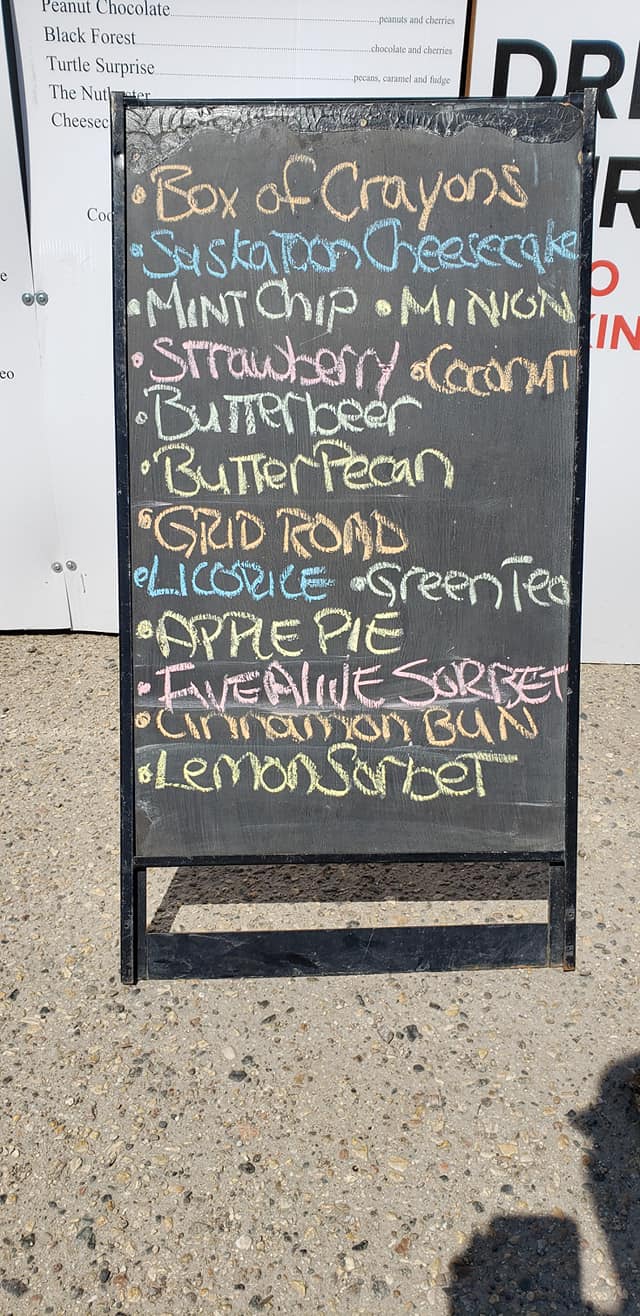 Peanut Chocolate peanuts and cherries
Black Forest chocolate and cherries
Turtle Surprise pecans, caramel and fudge
The
Box of Crayons
Saskatoon Cheesecake
MINT Chip • MINION
Strawberry • Coconut
Butterbeer
Butter Pecan
GRID ROAD
LICORICE • Green Tea
APPLE PIE
FIVE ALIVE SORBET
Cinnamon BUN
Lemon Sorbet